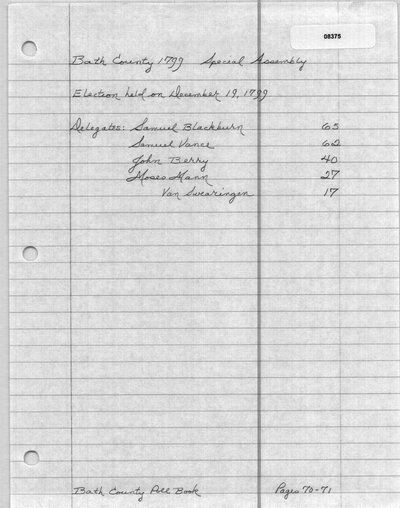 08375
Bath County 1799 Special Assembly
Election held on December 19, 1799
Delegates: Samuel Blackburn 65
Samuel Vance 62
John Berry 40
Moses Mann 27
Van Swearingen 17
Bath County Poll Book Pages 70-71